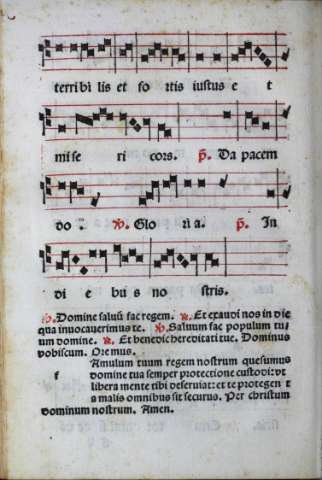 terribi lis et fo rtis iustus e t
mise ri cors. p̃. Da pacem
do . ℣. Glo ria. p̃. In
di e bus no stris.
℣. Domine saluū fac regem. ℟. Et exaudi nos in die
qua inuocauerimus te. ℣. Saluum fac populum tu/
um domine. ℟. Et benedic hereditati tue. Dominus
vobiscum. Oremus.
f Amulum tuum regem nostrum quesumus
domine tua semper protectione custodi: vt
libera mente tibi deseruiat: et te protegen t
e malis omnibus sit securus. Per christum
dominum nostrum. Amen.